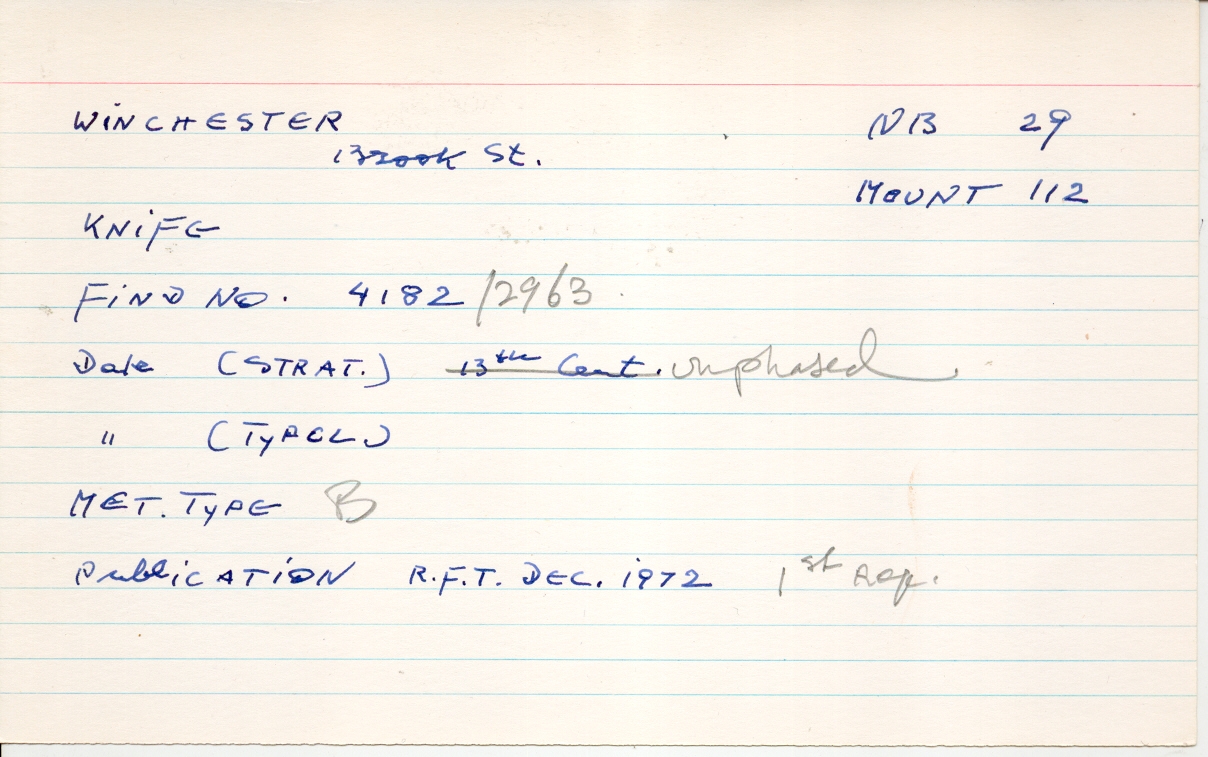 WINCHESTER NB 29
Brook St.
MOUNT 112
KNIFE
FIND NO. 4182/2963.
Date (STRAT.) 13th Cent. unphased
" (TYPOL)
MET. TYPE B
Publication R.F.T. DEC. 1972 1st Rep.